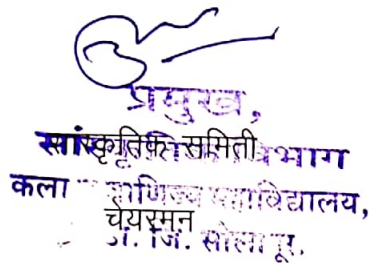 प्रमुख,
सांस्कृतिक विभाग
सांस्कृतिक समिती
कला वाणिज्य महाविद्यालय,
चेयरमन
जि. सोलापूर.